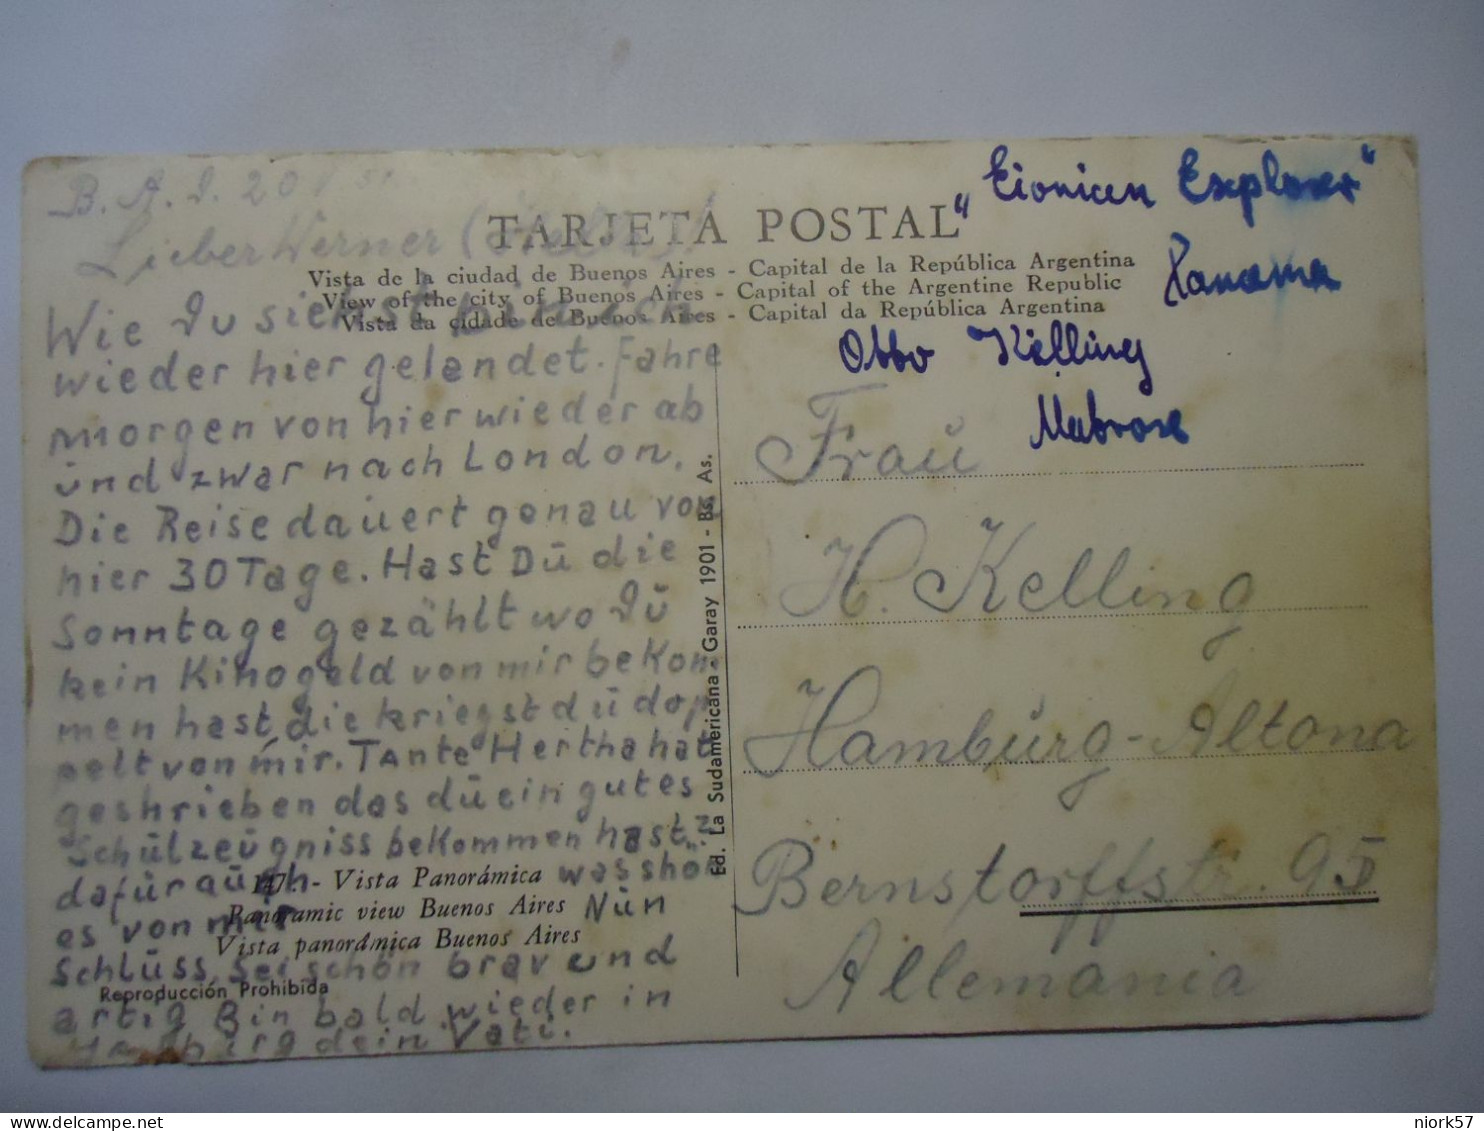 B. A. d. 20
Lieber Werner
TARJETA POSTAL
Vista de la ciudad de Buenos Aires - Capital de la República Argentina
View of the city of Buenos Aires - Capital of the Argentine Republic
Vista da cidade de Buenos Aires - Capital da República Argentina
Wie du siehst bin ich
wieder hier gelandet. Fahre
morgen von hier wieder ab
und zwar nach London.
Die Reise dauert genau von
hier 30 Tage. Hast Dū die
Sonntage gezählt wo dū
kein Kinogeld von mir bekom
men hast die kriegst dū dop
pelt von mir. Tante Hertha hat
geshrieben das dū ein gutes
Schūlzeūgniss bekommen hast.
dafūr aūch was shön
es von mir Nūn
Schlūss sei schön brav und
artig Bin bald wieder in
Hamburg dein Vati.
- Vista Panorámica
Panoramic view Buenos Aires
Vista panorámica Buenos Aires
Reproducción Prohibida
Ed. La Sudamericana - Garay 1901 - Bs. As.
" Explorer"
Panama
Otto Kelling
Matrose
Fraū
H. Kelling
Hambūrg-Altona
Bernstorffstr. 95
Allemania
niork57